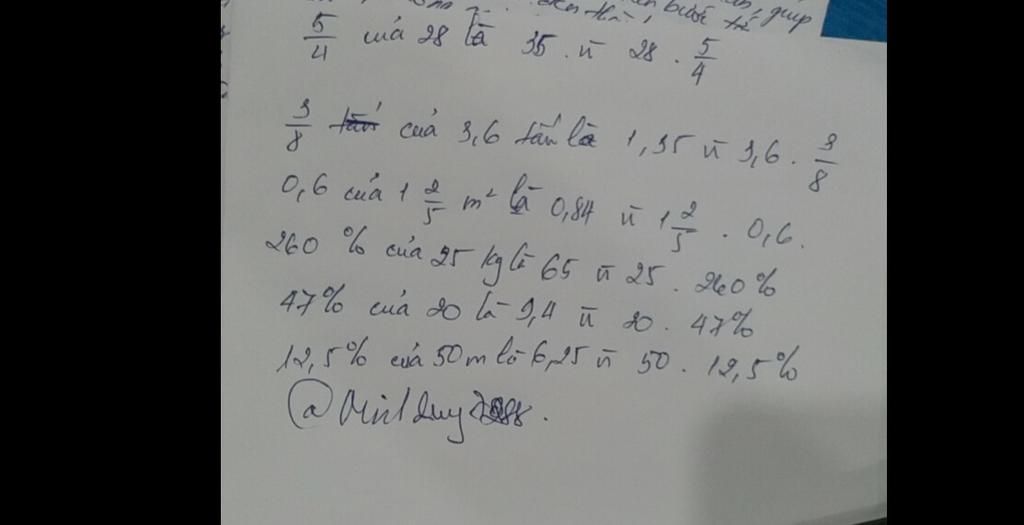 giúp
5/4 của 28 là 35 . vì 28 . 5/4
3/8 của 3,6 tấn là 1,35 vì 3,6 . 3/8
0,6 của 1 2/5 m² là 0,84 vì 1 2/5 . 0,6.
260 % của 25 kg là 65 vì 25 . 260%
47% của 20 là 9,4 vì 20 . 47%
12,5% của 50 m là 6,25 vì 50 . 12,5%